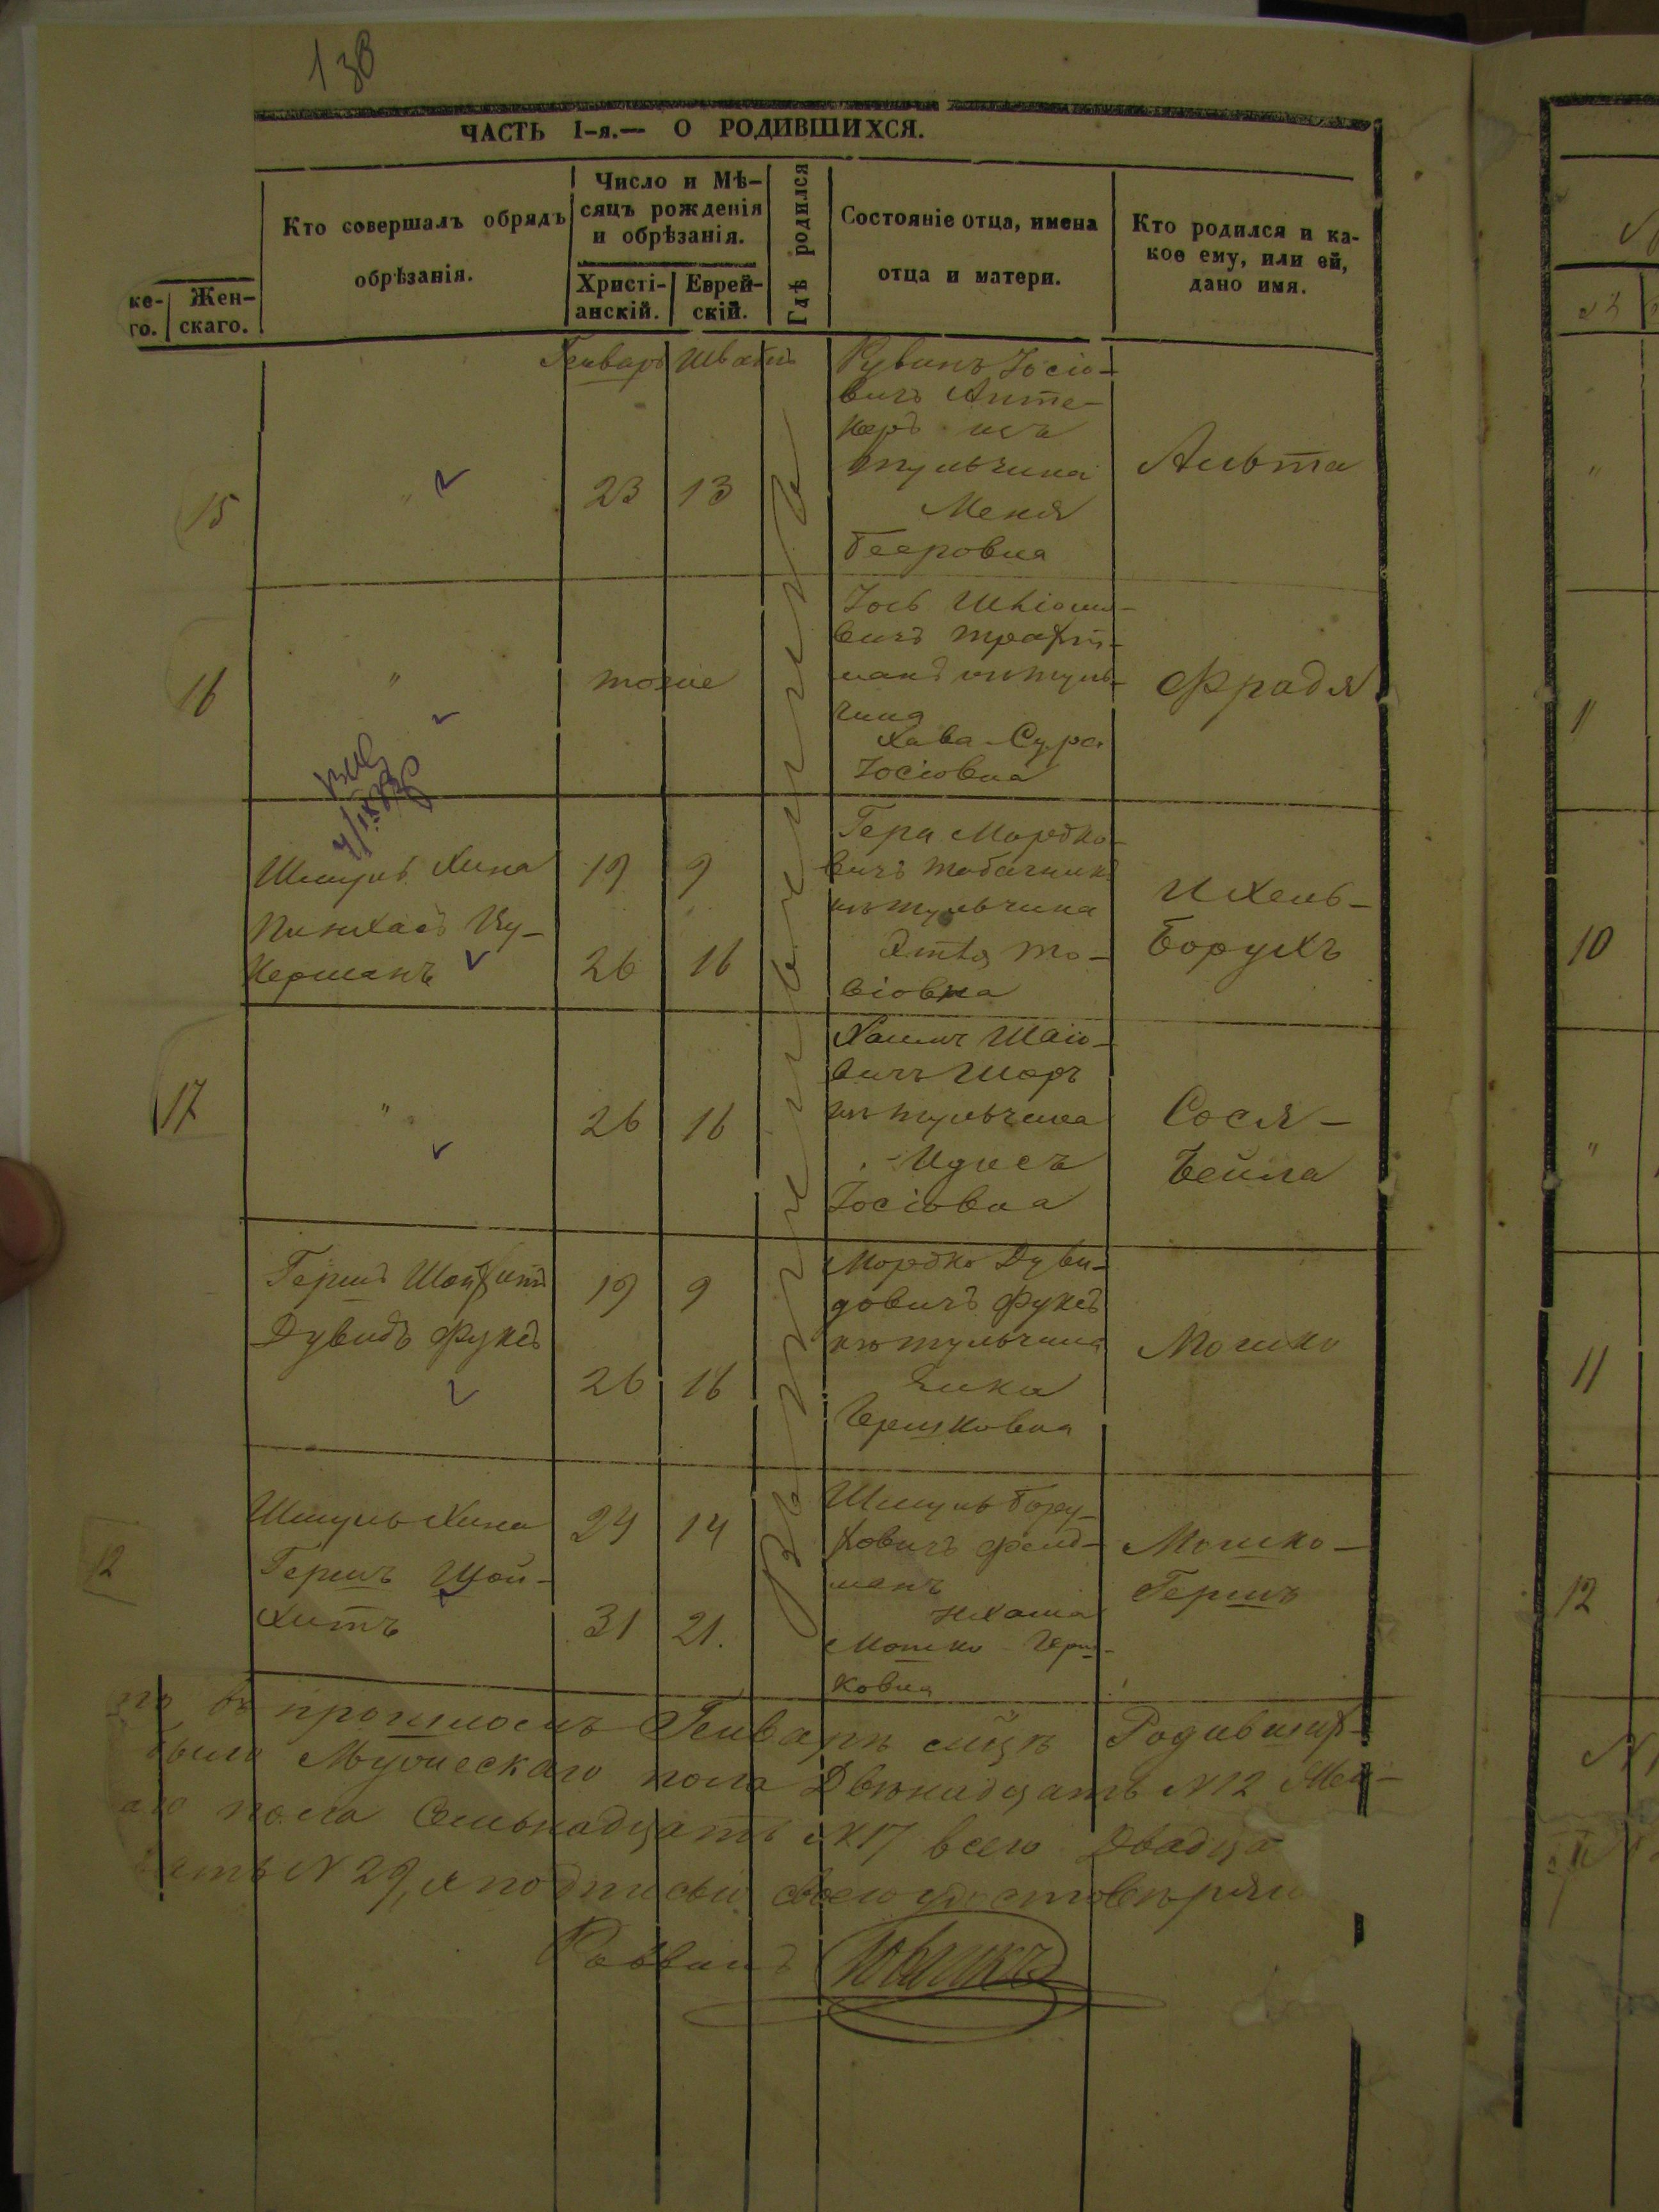 138
ЧАСТЬ I-я.— О РОДИВШИХСЯ.
ке-
го.
Жен-
скаго.
Кто совершалъ обрядъ
обрѣзанія.
Число и Мѣ-
сяцъ рожденія
и обрѣзанія.
Христі-
анскій.
Еврей-
скій.
Гдѣ родился
Состояніе отца, имена
отца и матери.
Кто родился и ка-
кое ему, или ей,
дано имя.
Генварь Шватъ
15
"
23 13
Рувинъ Іосіо-
вичъ Апте-
керъ изъ
тульчина
Меня
Бееровна
Альта
16
"
тоже
Іось
вичъ
тульчина
Хава-Сура
Іосіовна
Фрадя
Шмуль Хина
Пинхасъ Ку-
керманъ
19 9
26 16
Герш Мордко-
вичъ Табачникъ
изъ тульчина
То-
віовна
Ихель-
Борухъ
17
"
26 16
Хаимъ Шаіо-
вичъ Шоръ
изъ тульчина
Идесъ
Іосіовна
Сося-
Бейла
Гершъ Шойхитъ
Дувидъ Фуксъ
19 9
26 16
Мордко Дуви-
довичъ Фуксъ
изъ тульчина
Герш ковна
Мошко
12
Шмуль Хина
Гершъ Шой-
хитъ
24 14
31 21.
Шмуль Бору-
ховичъ Фельд-
манъ
Нехама
Мошко-Герш-
ковна
Мошко-
Гершъ
въ прошломъ Генварѣ мцѣ Родивших-
было Мужескаго пола Двѣнадцать N12 Жен-
аго пола Семьнадцать N17 всего Двадца
ять N 29, я подписью своею удостовѣряю
Раввинъ
10
11
12